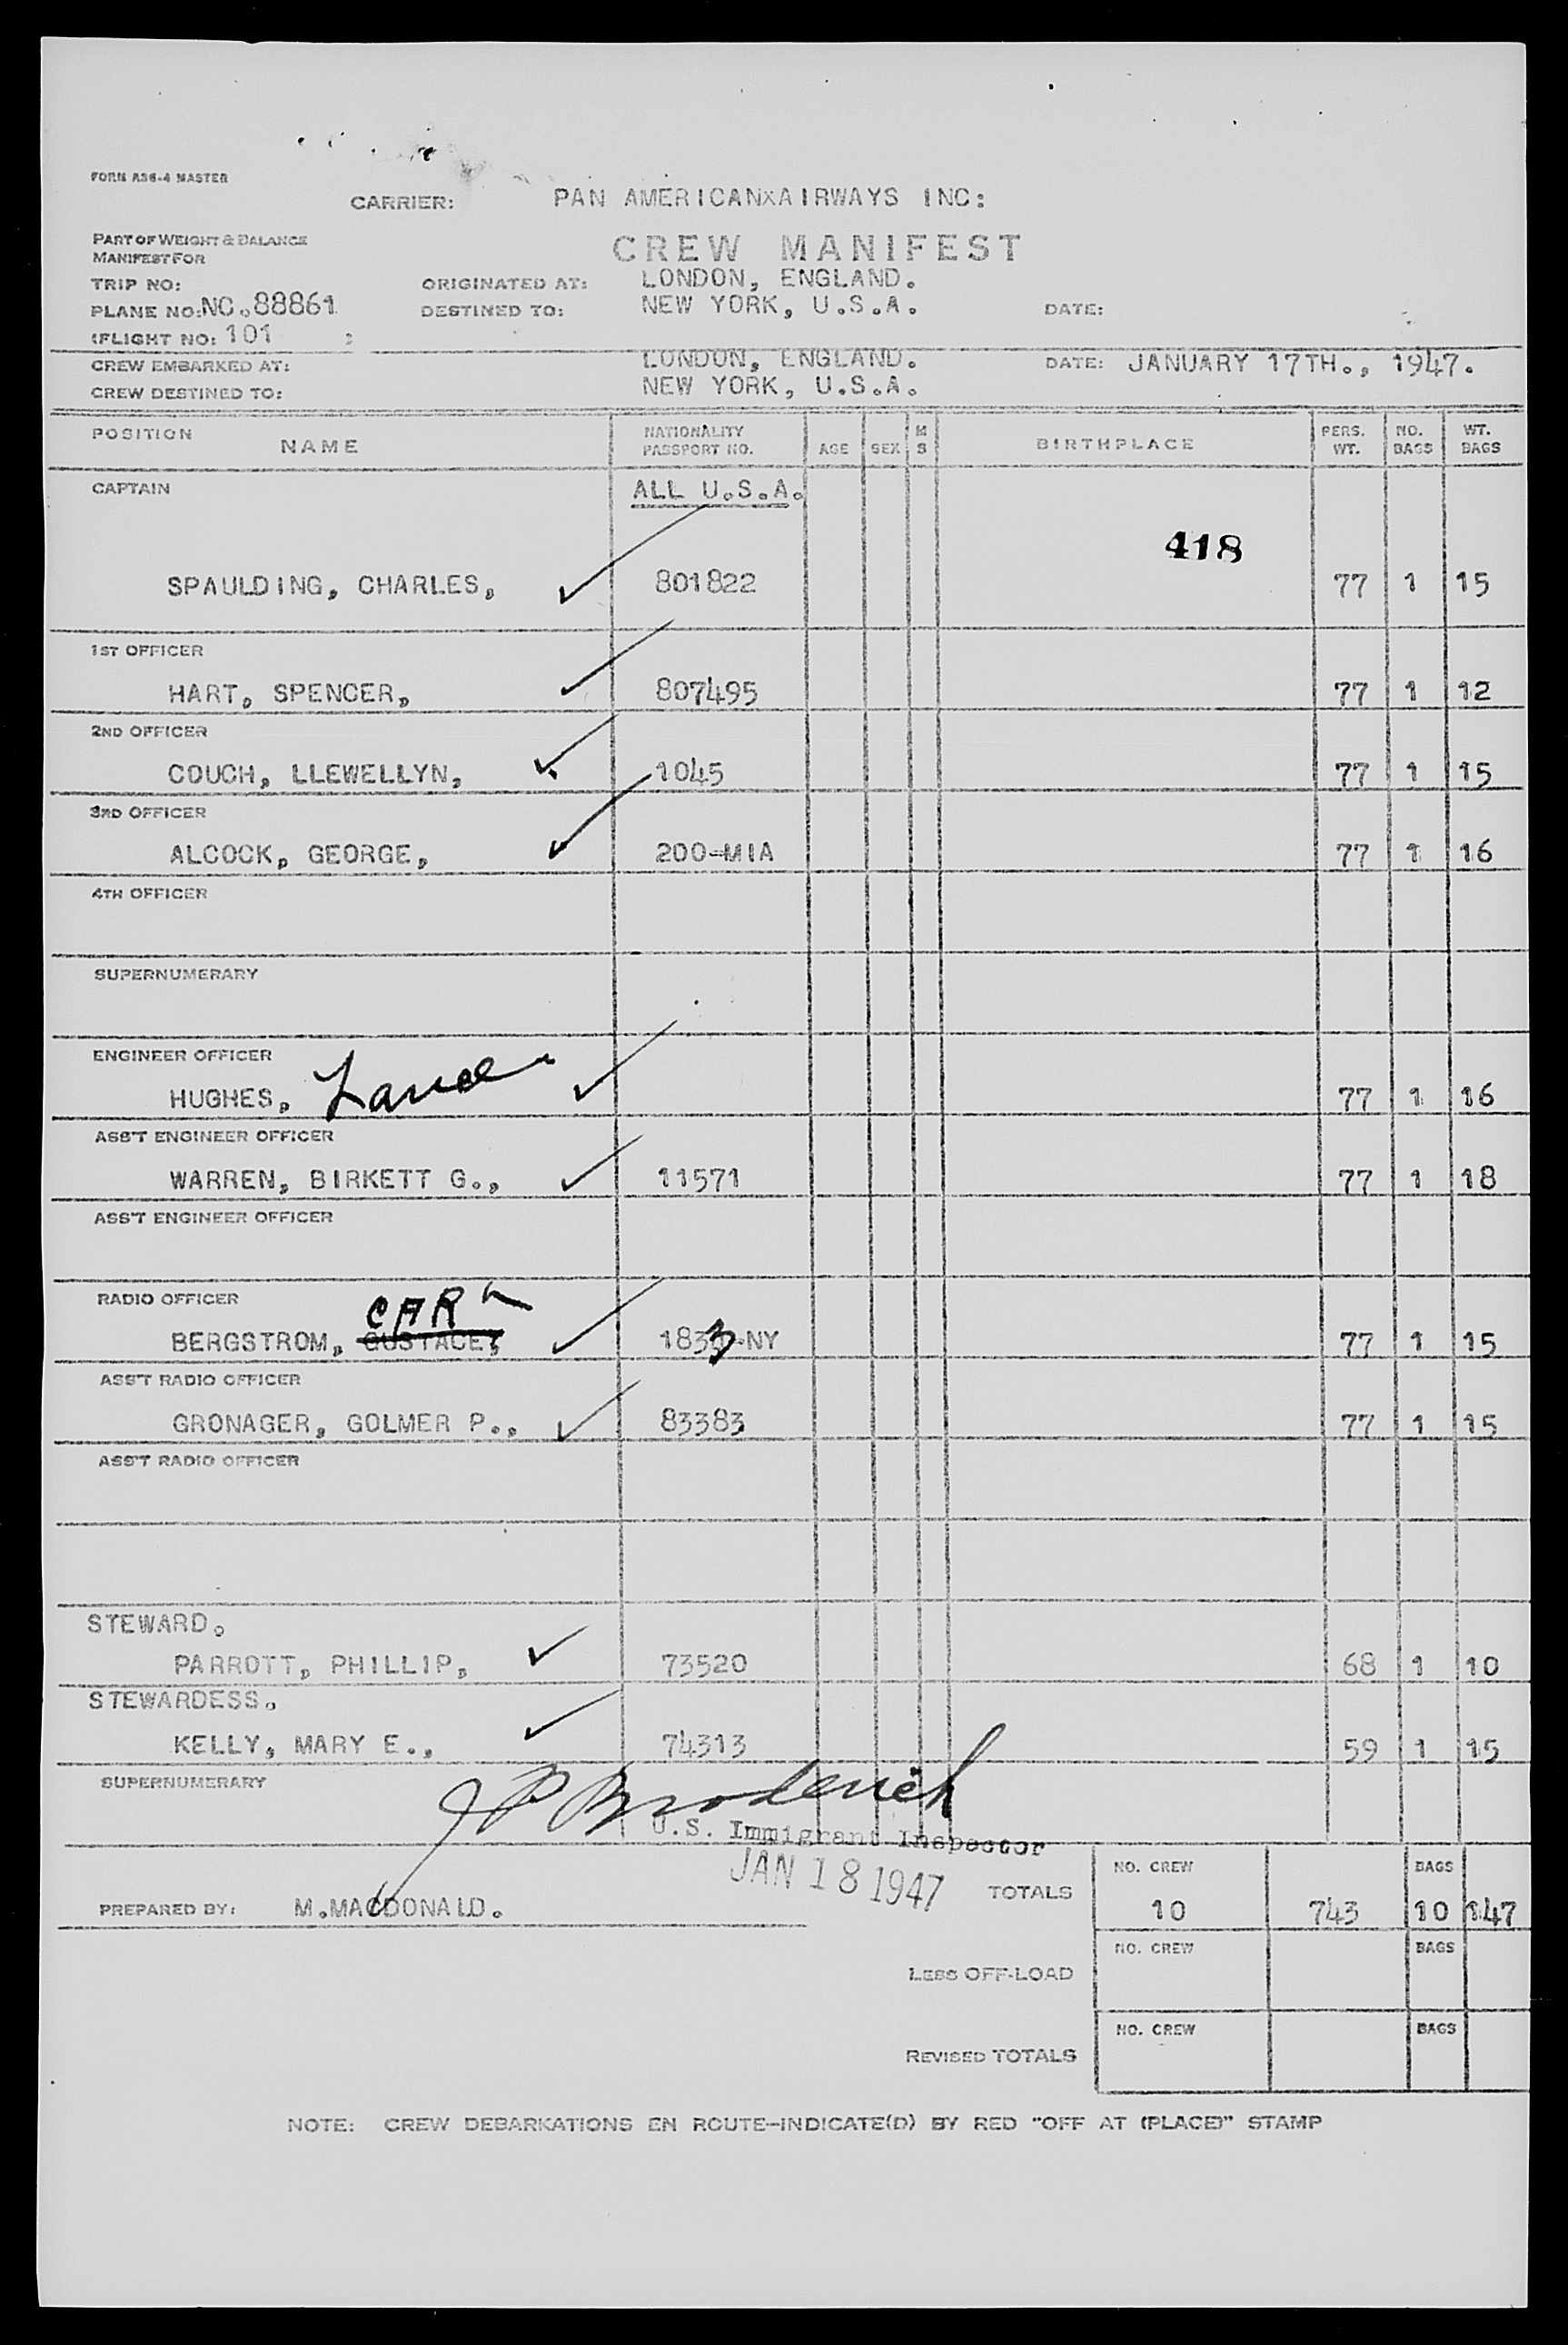 FORM A36-4 MASTER
CARRIER: PAN AMERICANXAIRWAYS INC:
PART OF WEIGHT & BALANCE
MANIFEST FOR
CREW MANIFEST
TRIP NO: ORIGINATED AT: LONDON, ENGLAND.
PLANE NO: NC.88861 DESTINED TO: NEW YORK, U.S.A. DATE:
(FLIGHT NO: 101
CREW EMBARKED AT: LONDON, ENGLAND. DATE: JANUARY 17TH., 1947.
CREW DESTINED TO: NEW YORK, U.S.A.
POSITION NAME NATIONALITY PASSPORT NO. AGE SEX M S BIRTHPLACE PERS. WT. NO. BAGS WT. BAGS
CAPTAIN ALL U.S.A.
418
SPAULDING, CHARLES, 801822 77 1 15
1ST OFFICER
HART, SPENCER, 807495 77 1 12
2ND OFFICER
COUCH, LLEWELLYN, 1045 77 1 15
3RD OFFICER
ALCOCK, GEORGE, 200-MIA 77 1 16
4TH OFFICER
SUPERNUMERARY
ENGINEER OFFICER
HUGHES, 77 1 16
ASS'T ENGINEER OFFICER
WARREN, BIRKETT G., 11571 77 1 18
ASS'T ENGINEER OFFICER
RADIO OFFICER CARL
BERGSTROM, GUSTACE, 1833-NY 77 1 15
ASS'T RADIO OFFICER
GRONAGER, GOLMER P., 83383 77 1 15
ASS'T RADIO OFFICER
STEWARD.
PARROTT, PHILLIP, 73520 68 1 10
STEWARDESS.
KELLY, MARY E., 74313 59 1 15
SUPERNUMERARY
J P Broderick
U.S. Immigrant Inspector
JAN 18 1947
NO. CREW BAGS
PREPARED BY: M.MACDONALD. TOTALS 10 743 10 147
NO. CREW BAGS
LESS OFF-LOAD
NO. CREW BAGS
REVISED TOTALS
NOTE: CREW DEBARKATIONS EN ROUTE-INDICATE(D) BY RED "OFF AT (PLACE)" STAMP